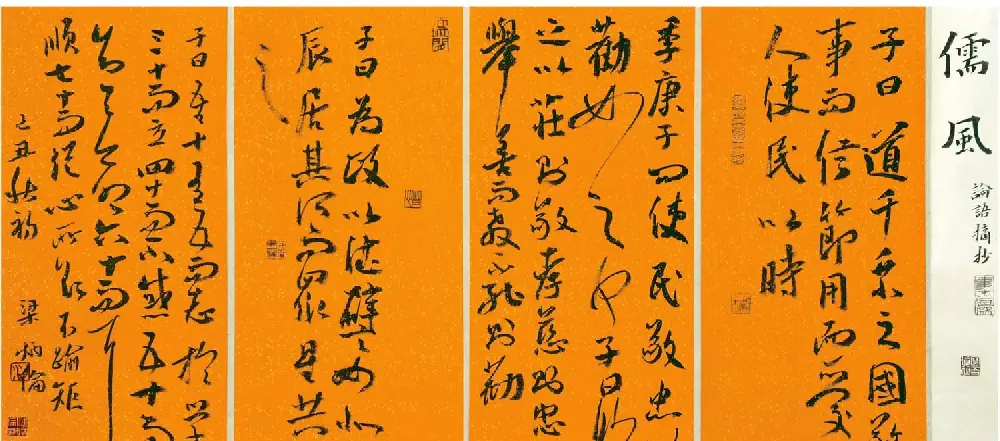 儒風
論語摘抄
子曰道千乘之國敬
事而信節用而愛
人使民以時
季康子问使民敬忠
勸如之何子曰临
之以莊则敬孝慈则忠
舉善而教不能则勸
子曰為政以德譬如北
辰居其所而眾星共
之
子曰吾十有五而志於學
三十而立四十而不惑五十而
知天命六十而耳
順七十而從心所欲不踰矩
己丑秋初 梁炳倫